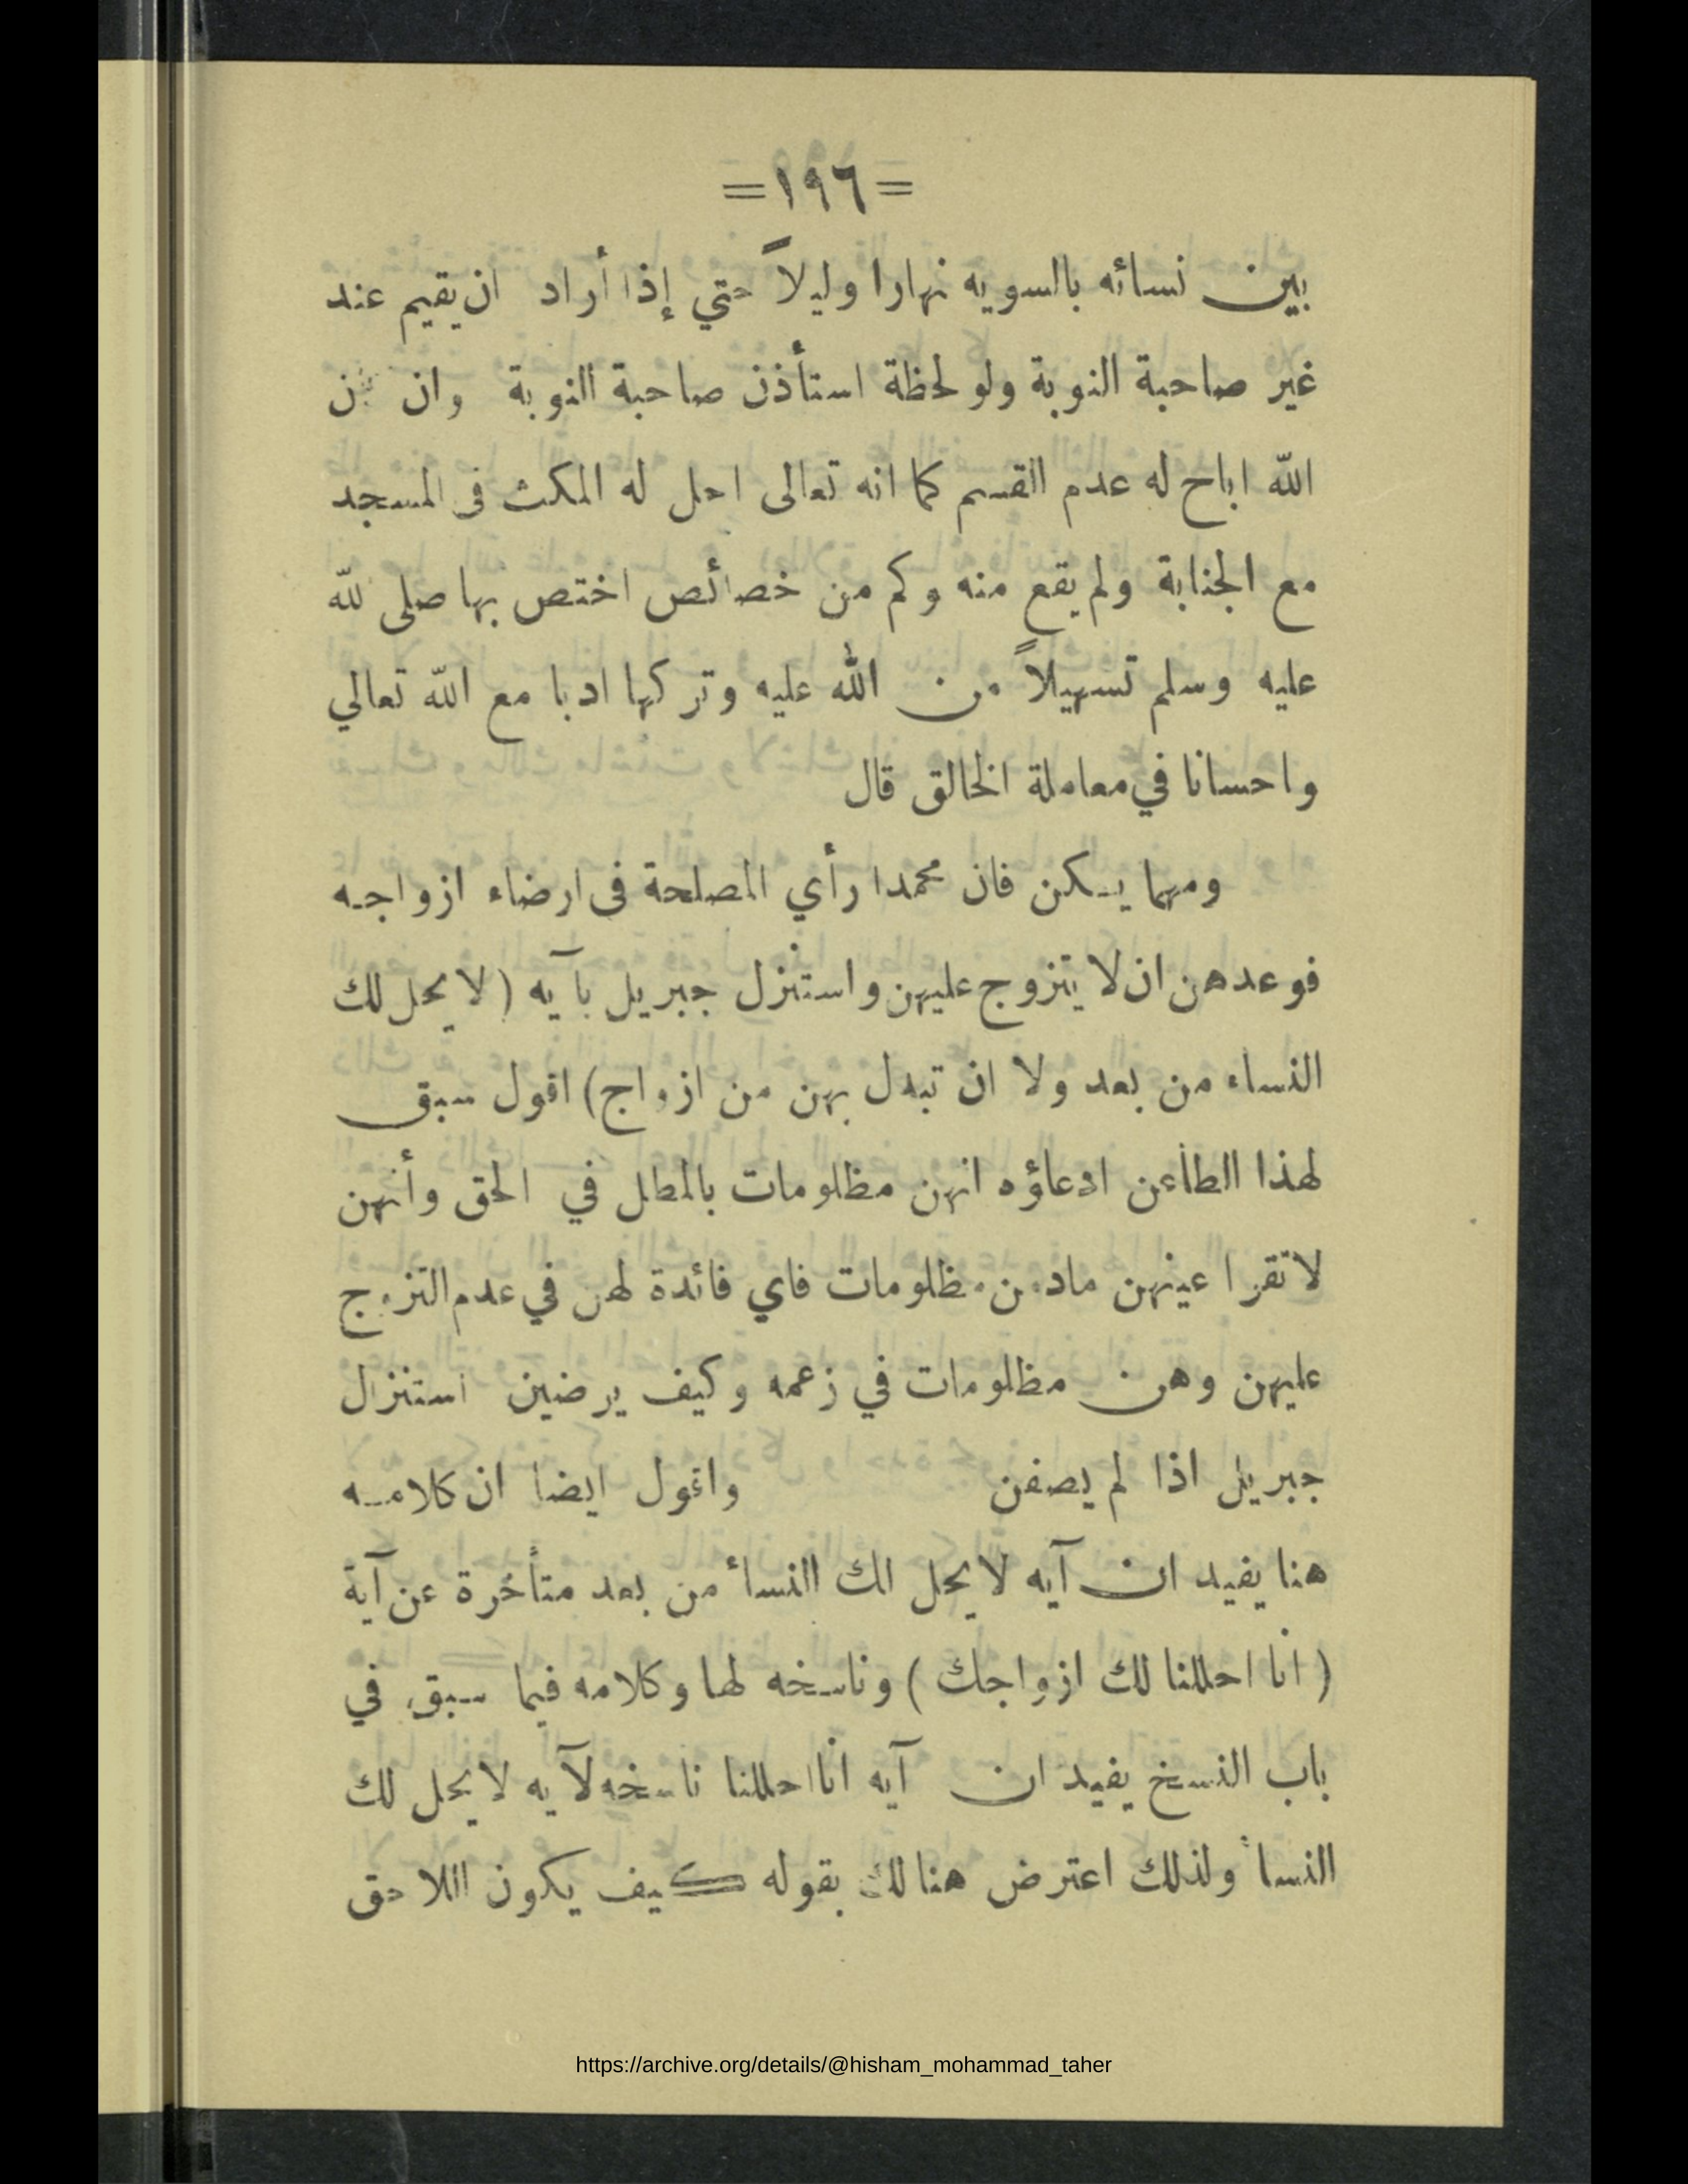 =١٩٦=
بين نسائه بالسويه نهارا وليلاً حتي إذا أراد ان يقيم عند
غير صاحبة النوبة ولو لحظة استأذن صاحبة النوبة وان
الله اباح له عدم القسم كما انه تعالى احل له المكث فى المسجد
مع الجنابة ولم يقع منه وكم من خصائص اختص بها صلى لله
عليه وسلم تسهيلاً من الله عليه وتركها ادبا مع الله تعالي
واحسانا في معاملة الخالق قال
ومهما يـكن فان محمدا رأي المصلحة فى ارضاء ازواجـه
فوعدهن ان لا يتزوج عليهن واستنزل جبريل بآيه (لا يحل لك
النساء من بعد ولا ان تبدل بهن من ازواج) اقول سبق
لهذا الطاعن ادعاؤه انهن مظلومات بالمطل في الحق وأنهن
لا تقر اعينهن مادمن مظلومات فاي فائدة لهن في عدم التزوج
عليهن وهن مظلومات في زعمه وكيف يرضين استنزال
جبريل اذا لم يصفن واقول ايضا ان كلامـه
هنا يفيد ان آيه لا يحل لك النسأ من بعد متأخرة عن آية
( انا احللنا لك ازواجك ) وناسخه لها وكلامه فيما سبق في
باب النسخ يفيد ان آيه انا احللنا ناسخه لآيه لا يحل لك
النسأ ولذلك اعترض هنالك بقوله كيف يكون اللاحق
https://archive.org/details/@hisham_mohammad_taher